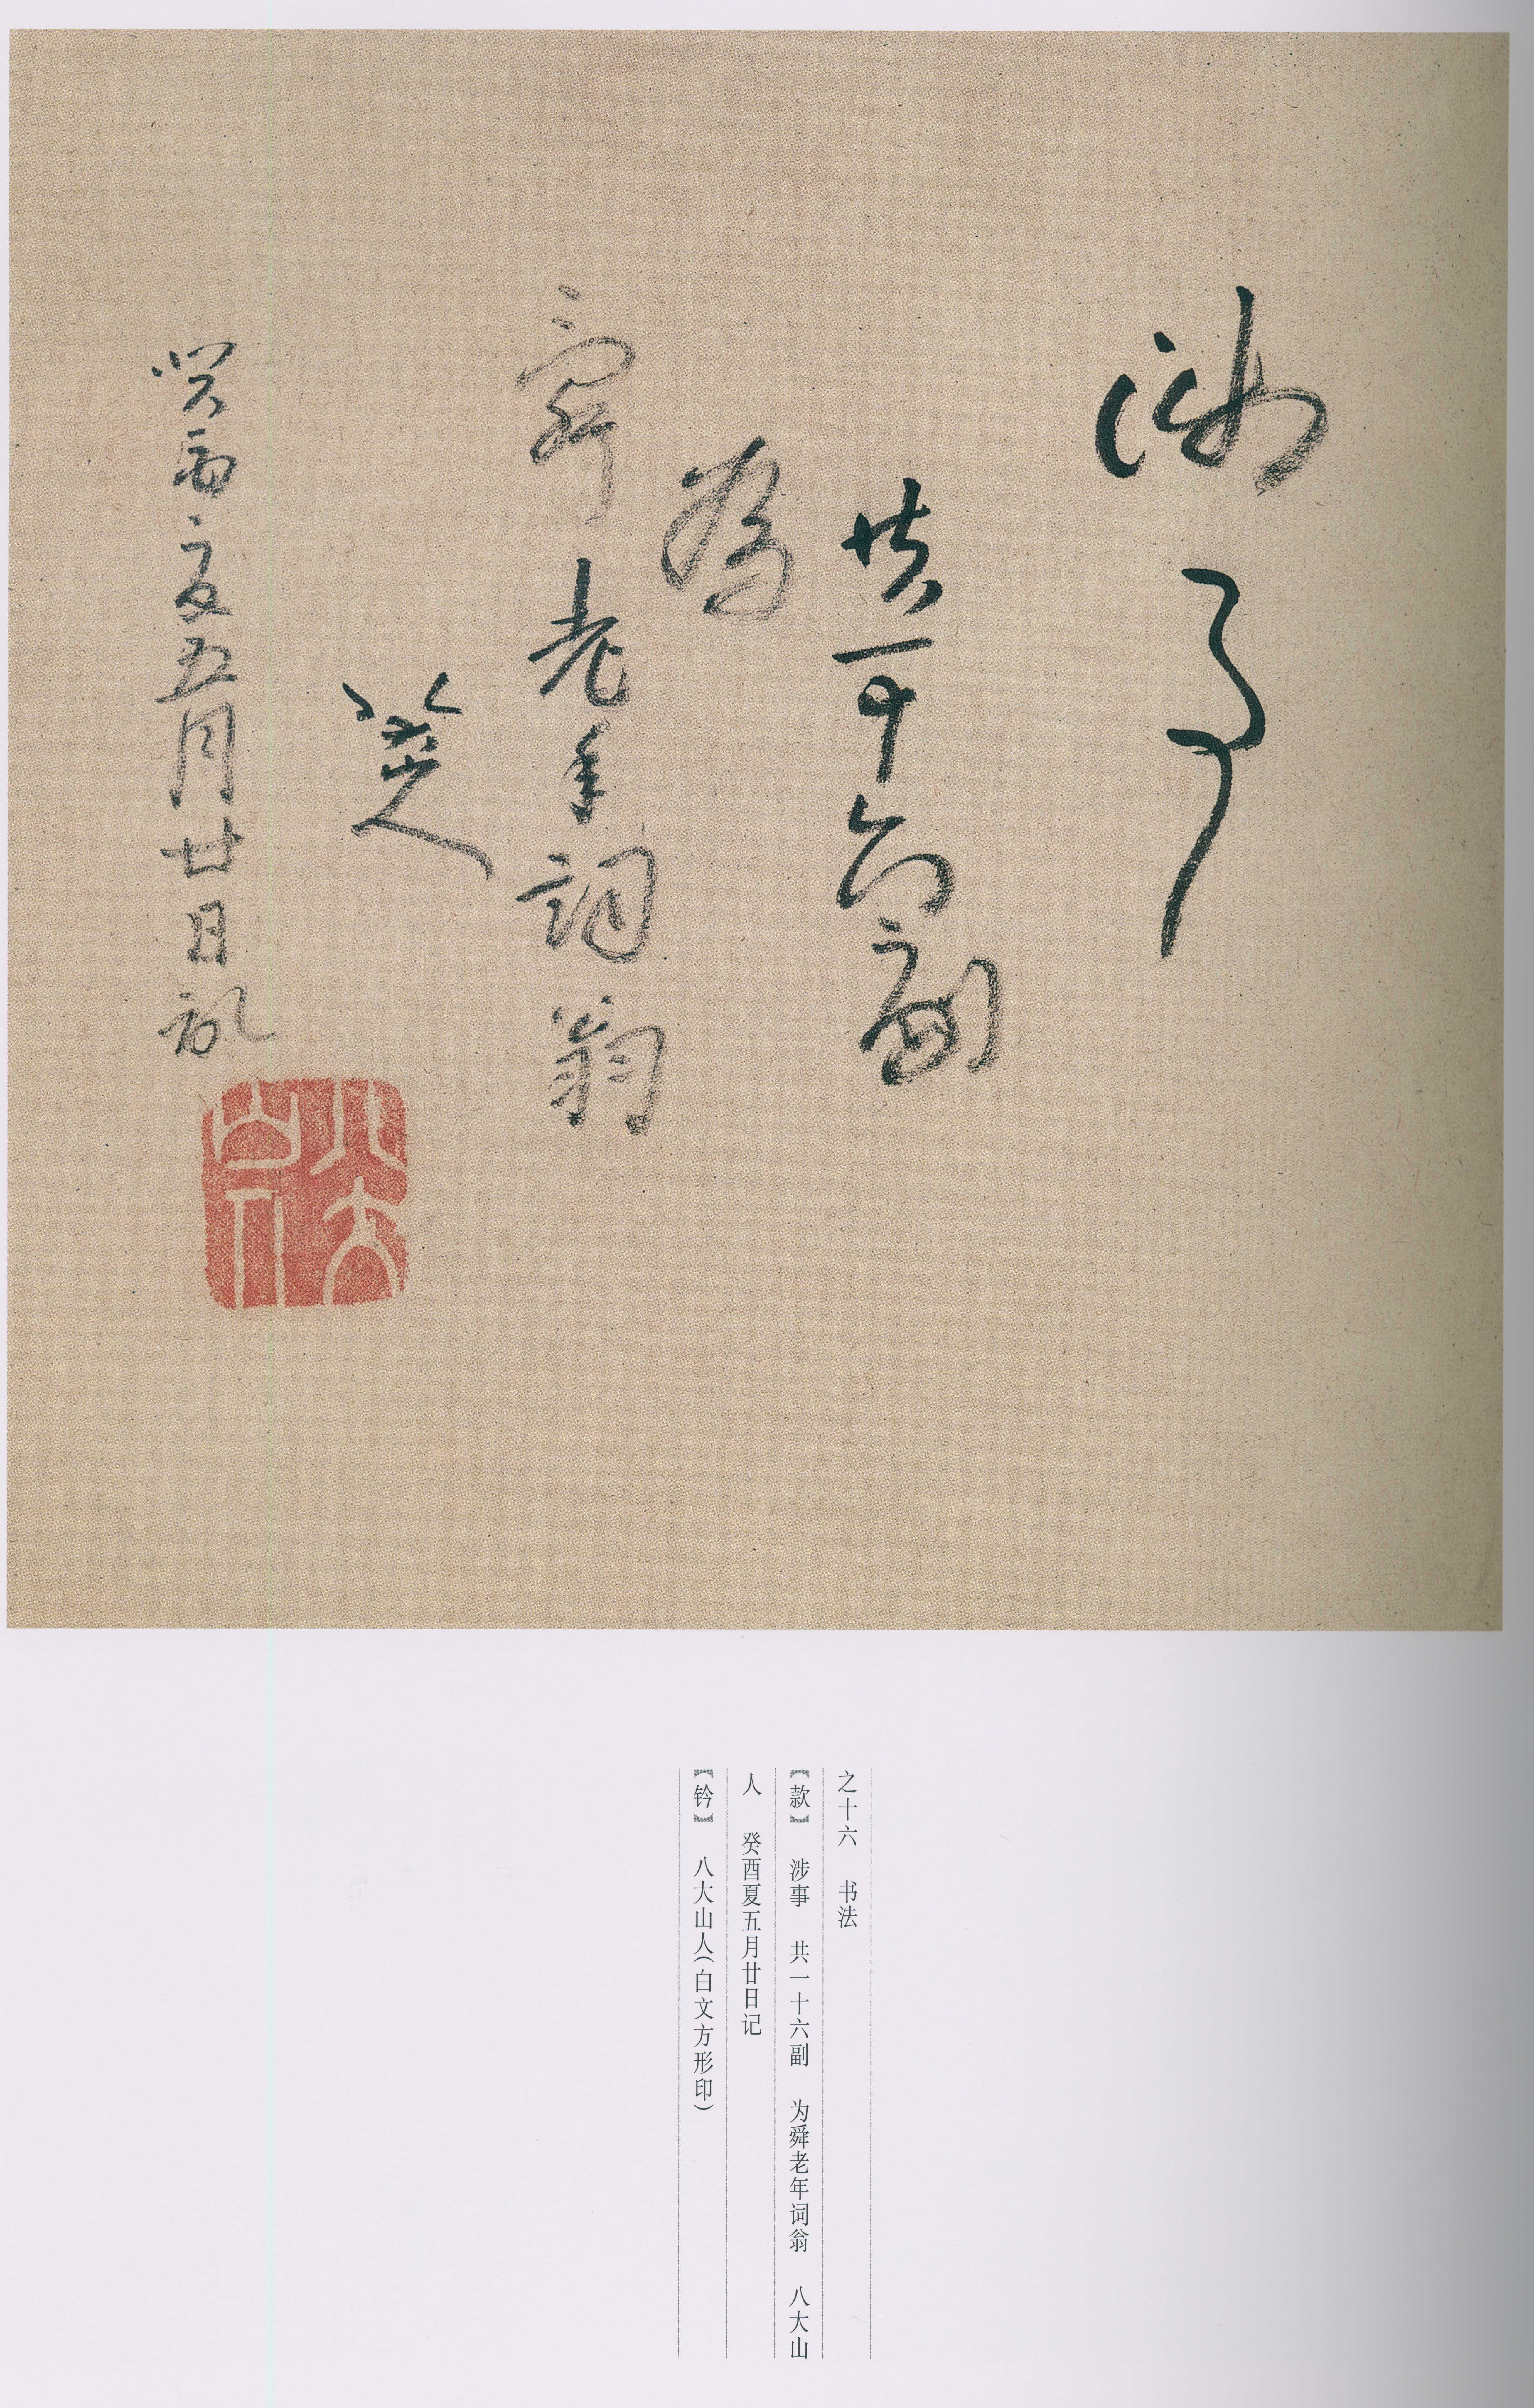 涉事
共一十六副
為
舜老年詞翁
八大山人
癸酉夏五月廿日記
八大山人
之十六 书法
【款】 涉事 共一十六副 为舜老年词翁 八大山
人 癸酉夏五月廿日记
【钤】 八大山人(白文方形印)